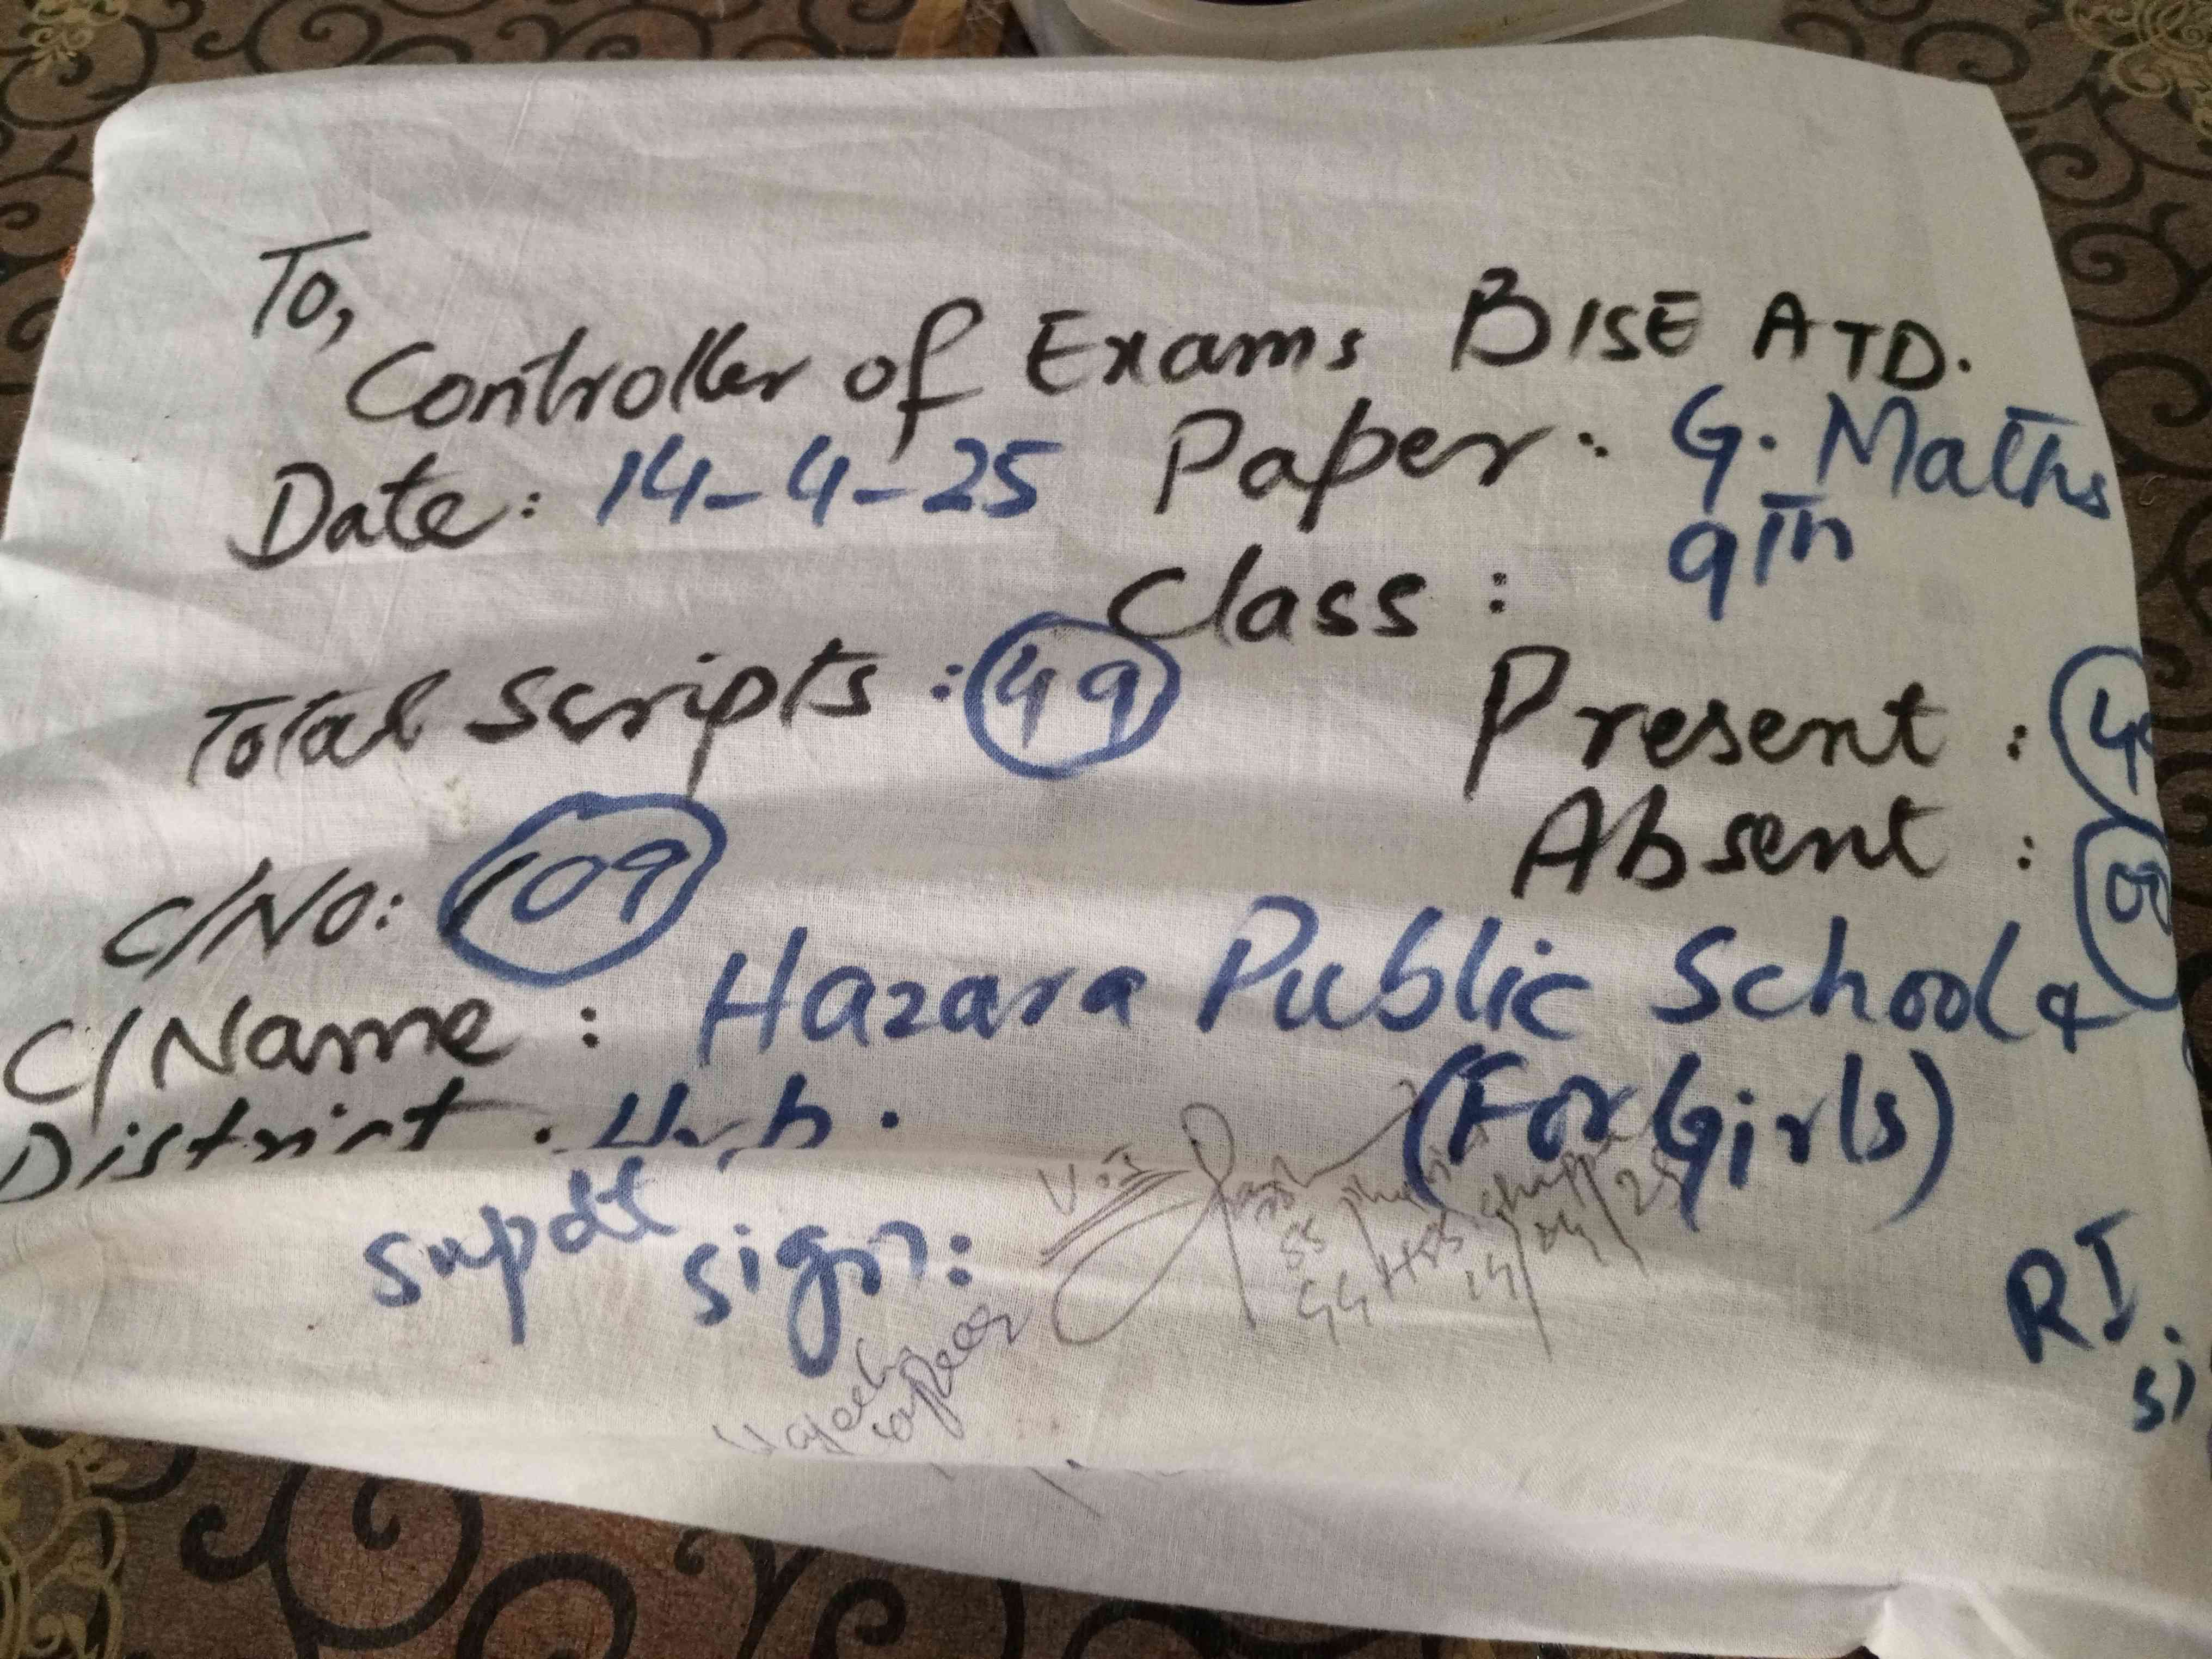 To,
Controller of Exams BISE ATD.
Date: 14-4-25 Paper: G. Maths
Class: 9th
Total Scripts: 49
Present: 4
Absent: 00
C/No: 109
C/Name: Hazara Public School &
(For Girls)
District
Supdt sign:
14/04/25
RI.
si